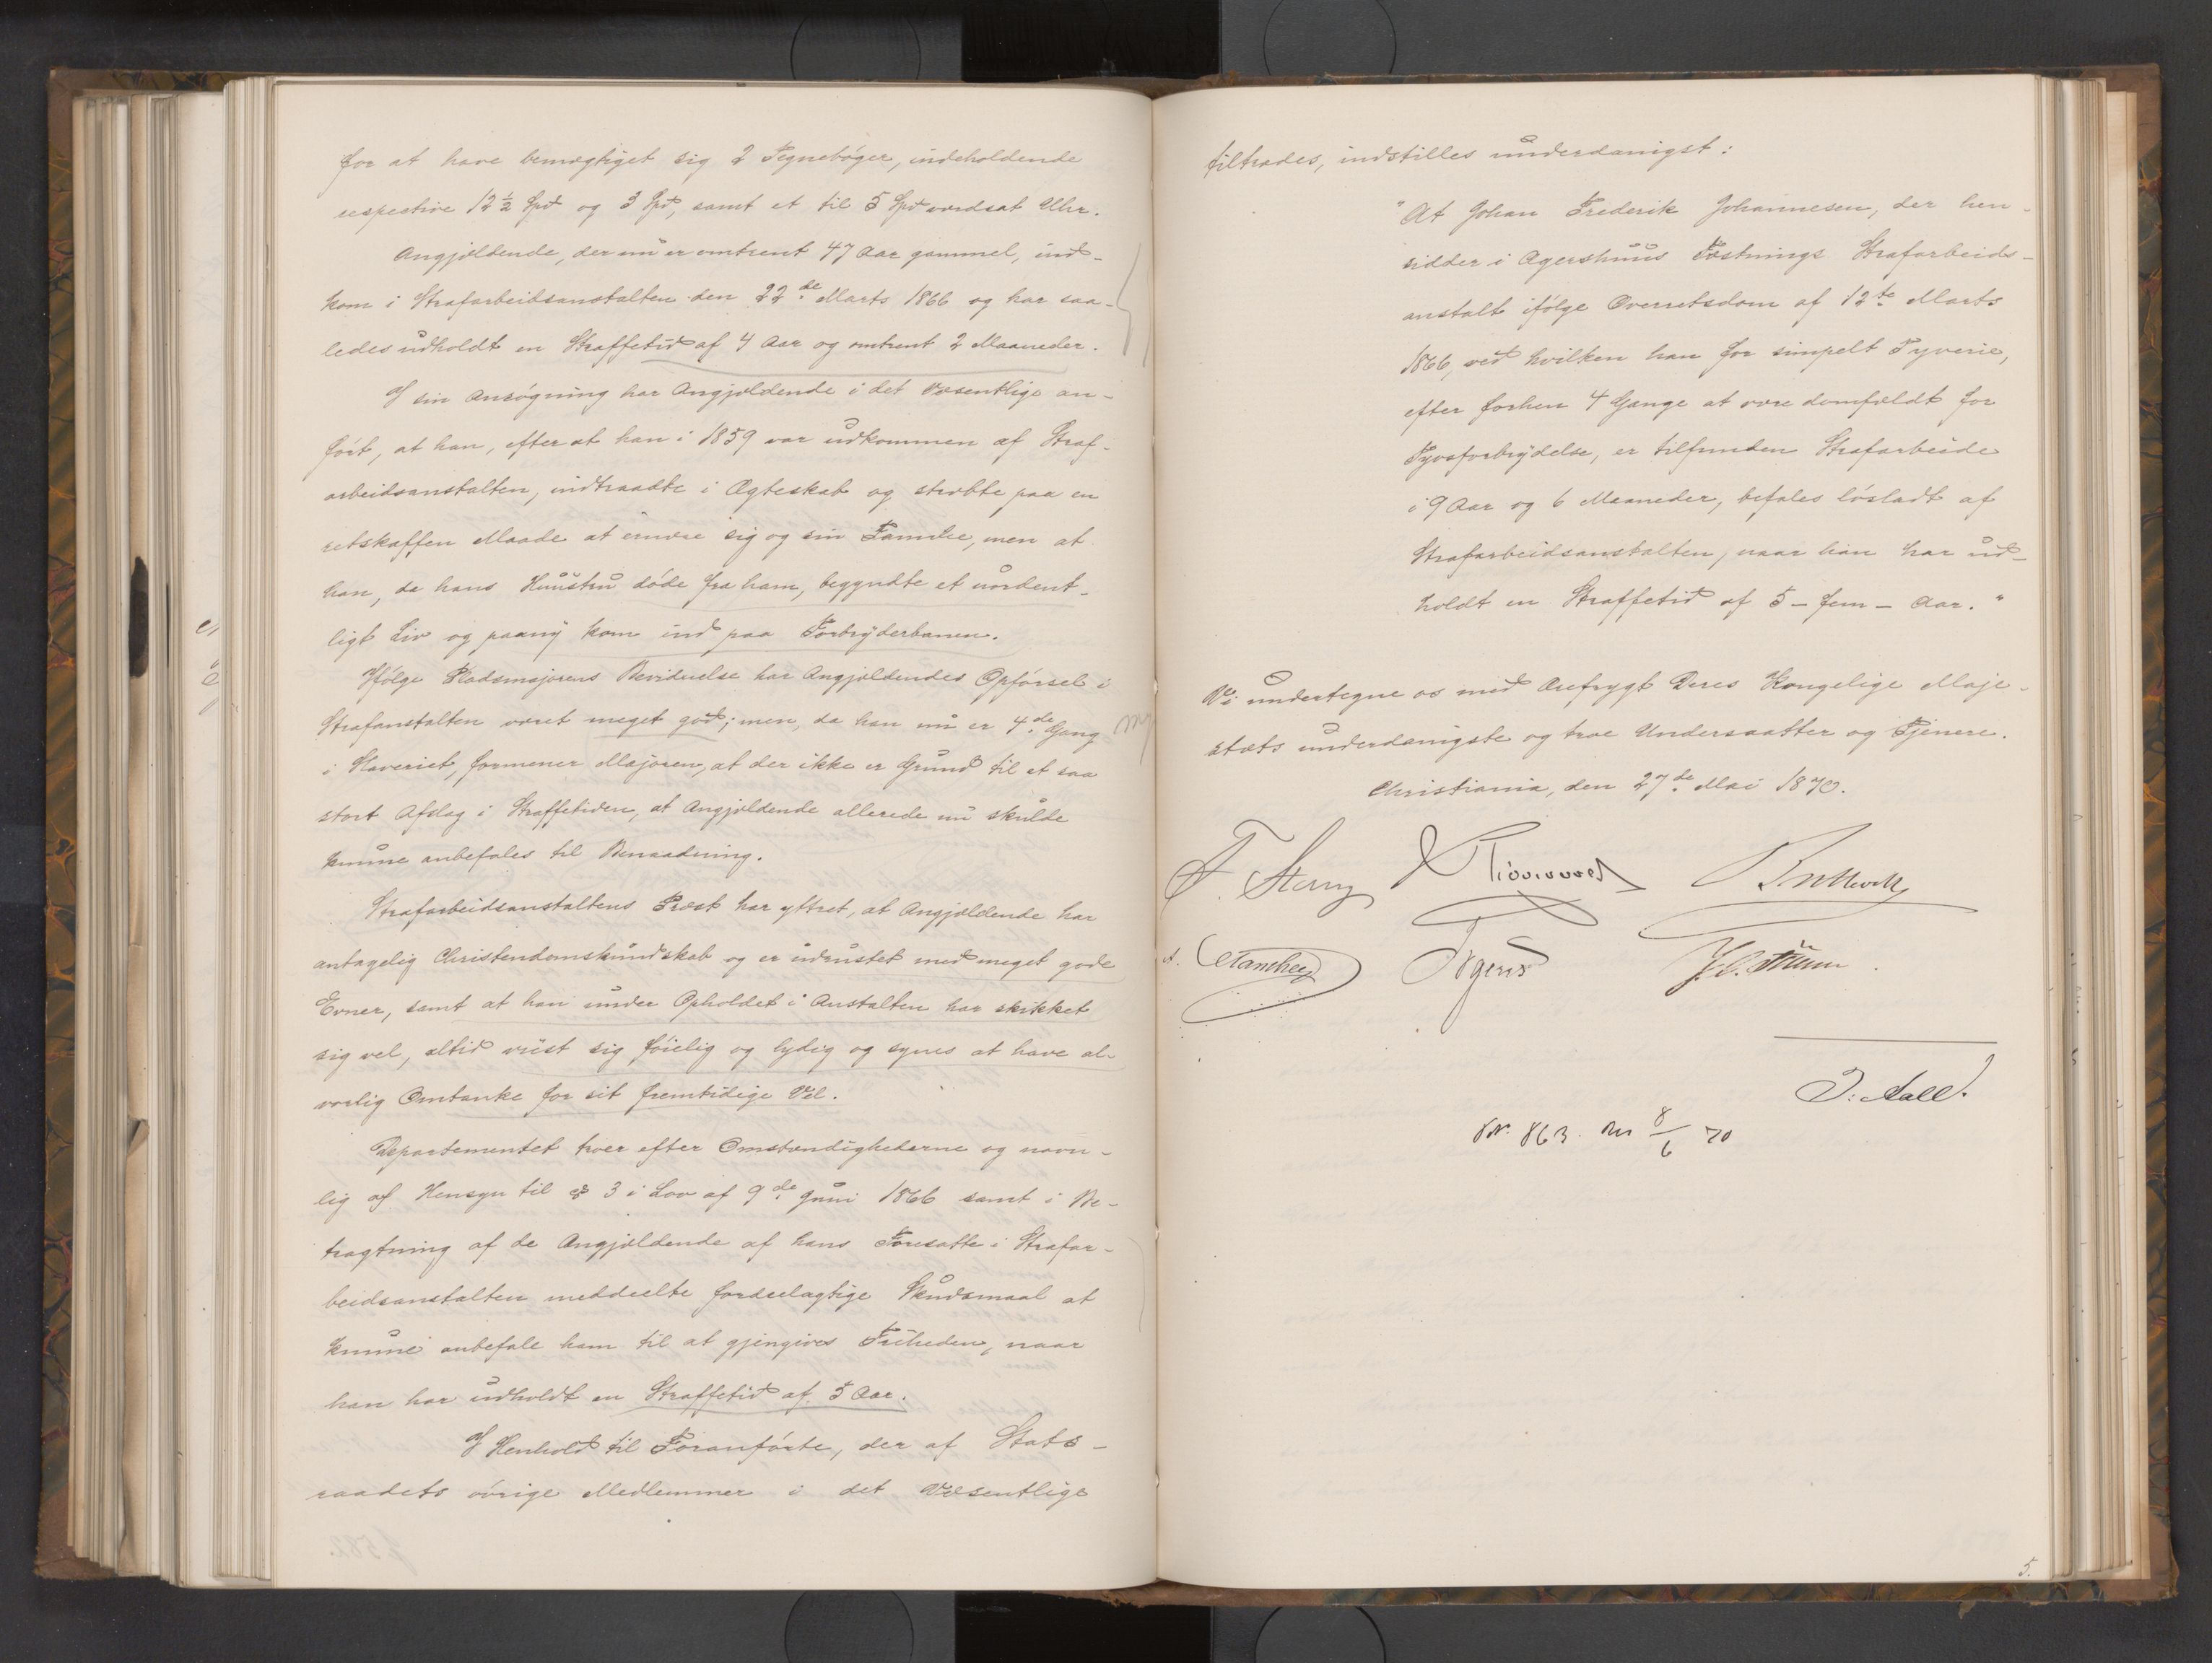 for at have bemægtiget sig 2 Tegnebøger, indeholdende
respective 12½ Spd og 3 Spd, samt et til 5 Spd værdsat Uhr.
Angjældende, der nu er omtrent 47 Aar gammel, ind-
kom i Strafarbeidsanstalten den 22de Marts 1866 og har saa-
ledes udholdt en Straffetid af 4 Aar og omtrent 2 Maaneder.
I sin Ansøgning har Angjældende i det Væsentlige an-
ført, at han, efter at han i 1859 var udkommen af Straf-
arbeidsanstalten, indtraadte i Ægteskab og stræbte paa en
retskaffen Maade at ernære sig og sin Familie, men at
han, da hans Huustru døde fra ham, begyndte et uordent-
ligt Liv og paany kom ind paa Forbryderbanen.
Ifølge Pladsmajorens Bevidnelse har Angjældendes Opførsel i
Strafanstalten været meget god; men, da han nu er 4de Gang
i Slaveriet, formener Majoren, at der ikke er Grund til et saa
stort Afslag i Straffetiden, at Angjældende allerede nu skulde
kunne anbefales til Benaadning.
Strafarbeidsanstaltens Præst har yttret, at Angjældende har
antagelig Christendomskundskab og er udrustet med meget gode
Evner, samt at han under Opholdet i Anstalten har skikket
sig vel, altid viist sig føielig og lydig og synes at have al-
vorlig Omtanke for sit fremtidige Vel.
Departementet troer efter Omstændighederne og navn-
lig af Hensyn til § 3 i Lov af 9de Juni 1866 samt i Be-
tragtning af de Angjældende af hans Foresatte i Strafar-
beidsanstalten meddeelte fordeelagtige Skudsmaal at
kunne anbefale ham til at gjengives Friheden, naar
han har udholdt en Straffetid af 5 Aar.
I Henhold til Foranførte, der af Stats-
raadets øvrige Medlemmer i det Væsentlige
tiltrædes, indstilles underdanigst:
"At Johan Frederik Johannesen, der hen-
sidder i Agershuus Fæstnings Strafarbeids-
anstalt ifølge Overretsdom af 12te Marts
1866, ved hvilken han for simpelt Tyverie,
efter forhen 4 Gange at være domfældt for
Tyvsforbrydelse, er tilfunden Strafarbeide
i 9 Aar og 6 Maaneder, befales løsladt af
Strafarbeidsanstalten, naar han har ud-
holdt en Straffetid af 5 - fem - Aar."
Vi undertegne os med Ærefrygt Deres Kongelige Maje-
stæts underdanigste og troe Undersaatter og Tjenere.
Christiania, den 27de Mai 1870.
F. Stang
Irgens
J. Aall.
No. 863. 8/6 70
5.